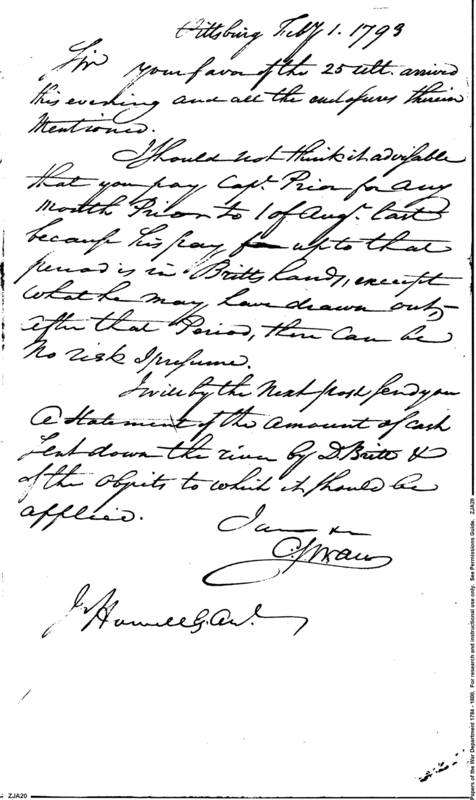 Pittsburg Feby 1. 1793
Sir your favor of the 25 ult. arrived
this evening and all the enclosures therein
Mentioned.
I should not think it advisable
that you pay Capt. Prior for any
month Prior to 1 of Augt. last
because his pay, up to that
period is in Britts hands, except
what he may have drawn out,
after that Period, there can be
No risk I presume.
I will by the Next post send you
a statement of the amount of cash
sent down the river by D Britt &
of the objects to which it should be
applied.
I am &c
C Swan
Jos Howell
ZJA20
Papers of the War Department 1784 - 1800. For research and instructional use only. See Permissions Guide. ZJA20